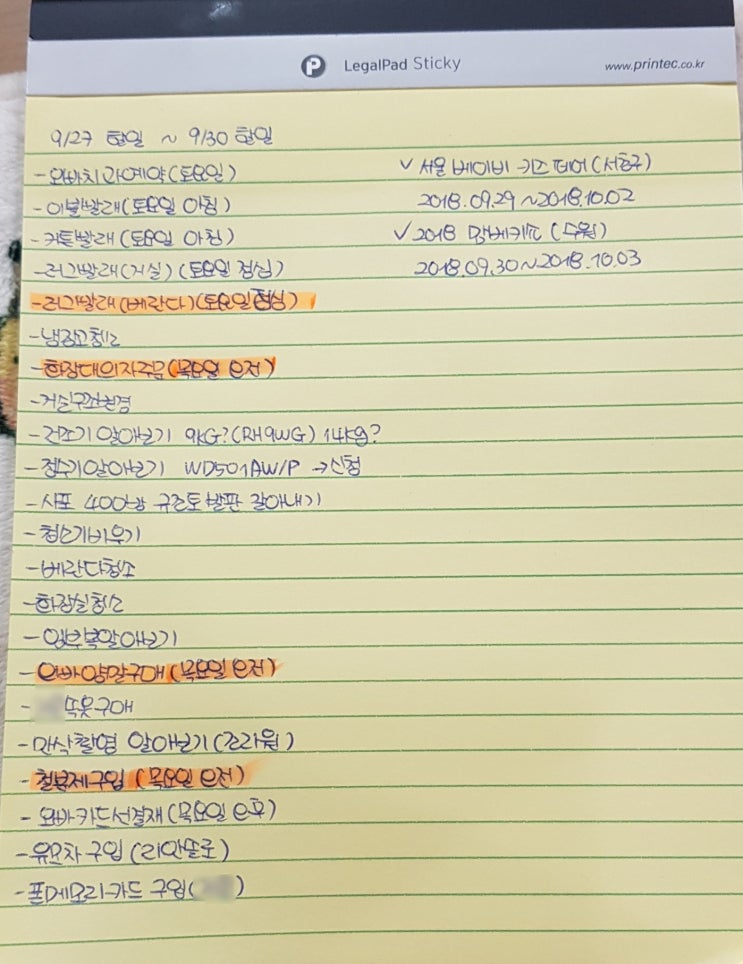 LegalPad Sticky
www.printec.co.kr
9/27 할일 ~ 9/30 할일
- 오빠치과예약(토요일)
- 이불빨래(토요일 아침)
- 커튼빨래(토요일 아침)
- 러그빨래(거실)(토요일 점심)
- 러그빨래(베란다)(토요일점심)
- 냉장고청소
- 화장대의자주문(목요일 오전)
- 거실구조변경
- 건조기알아보기 9KG?(RH9WG) 14kg?
- 정수기알아보기 WD501AW/P →신청
- 사포 400방 규조토발판 갈아내기
- 청소기비우기
- 베란다청소
- 화장실청소
- 임부복알아보기
- 오빠양말구매(목요일 오전)
- 속옷구매
- 만삭촬영 알아보기(
- 철분제구입 (목요일 오전)
- 오빠카드선결재(목요일 오후)
- 유모차 구입 (리안솔로)
- 폰메모리카드 구입( )
✓ 서울 베이비 키즈 페어(
2018.09.29 ~2018.10.02
✓ 2018 맘베키쇼 (수원)
2018.09.30~2018.10.03